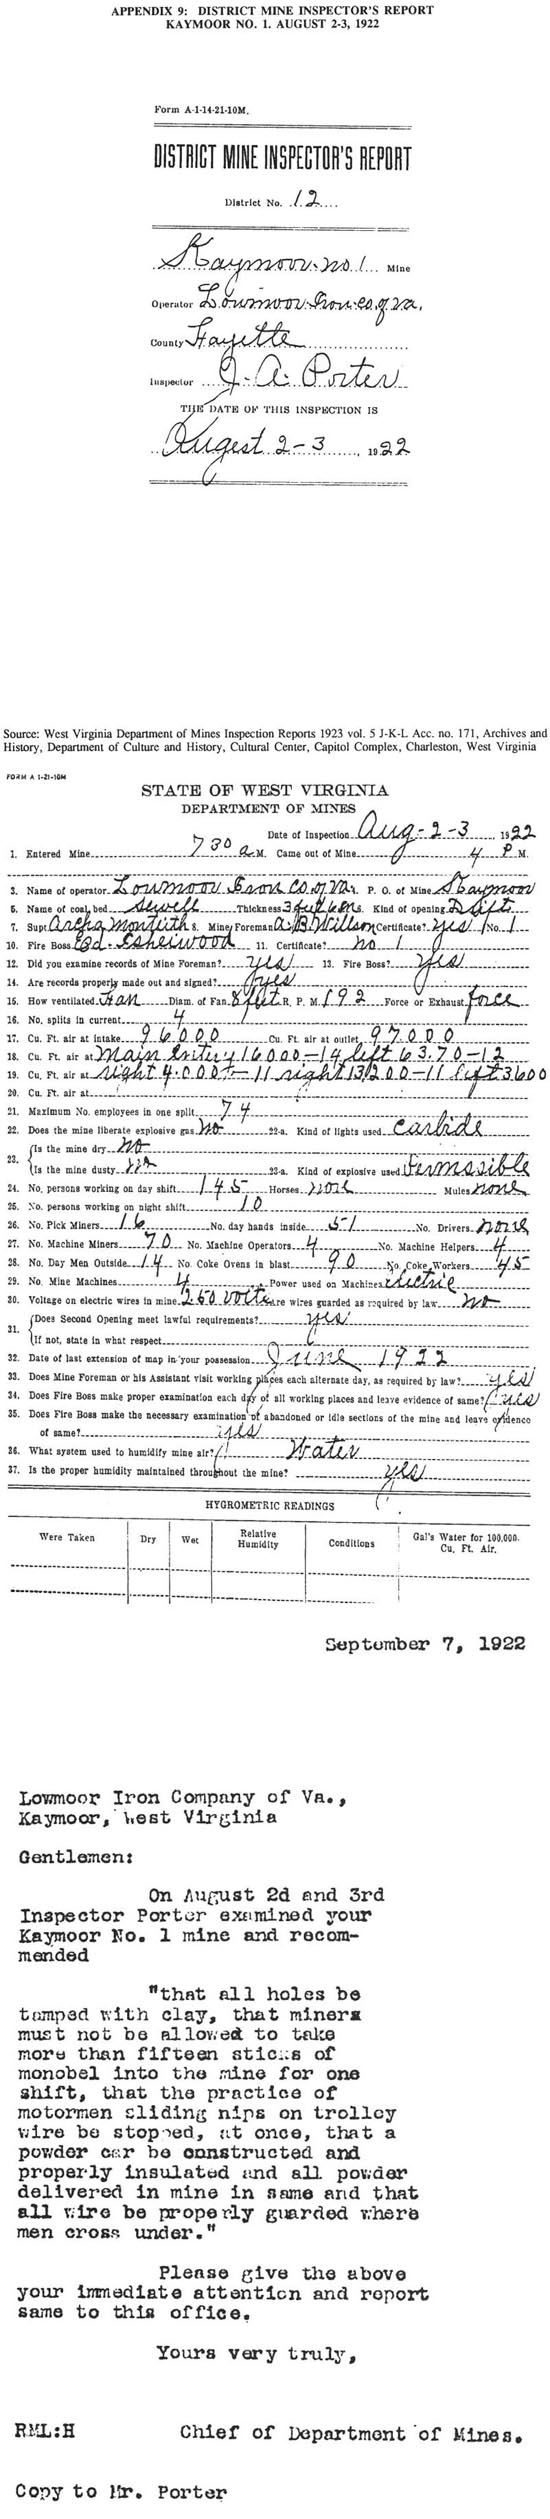 APPENDIX 9: DISTRICT MINE INSPECTOR'S REPORT
KAYMOOR NO. 1. AUGUST 2-3, 1922
Form A-1-14-21-10M.
DISTRICT MINE INSPECTOR'S REPORT
District No. 12
Kaymoor no 1 Mine
Operator Lowmoor Iron co of va.
County Fayette
Inspector J. A. Porter
THE DATE OF THIS INSPECTION IS
Augest 2-3, 1922
Source: West Virginia Department of Mines Inspection Reports 1923 vol. 5 J-K-L Acc. no. 171, Archives and
History, Department of Culture and History, Cultural Center, Capitol Complex, Charleston, West Virginia
FORM A 1-21-10M
STATE OF WEST VIRGINIA
DEPARTMENT OF MINES
Date of Inspection Aug-2-3, 1922
1. Entered Mine 730 a M. Came out of Mine 4 P M.
3. Name of operator Lowmoor Iron co of va. P. O. of Mine Kaymoor
5. Name of coal bed Sewell Thickness 3 feet 6 Kind of opening Drift
7. Supt Archa Monteith 8. Mine Foreman A. B. Willson Certificate? yes No. 1
10. Fire Boss Ed 11. Certificate? no 1
12. Did you examine records of Mine Foreman? yes 13. Fire Boss? yes
14. Are records properly made out and signed? yes
15. How ventilated Fan Diam. of Fan 8 feet R. P. M. 192 Force or Exhaust force
16. No. splits in current 4
17. Cu. Ft. air at intake 96000 Cu. Ft. air at outlet 97000
18. Cu. Ft. air at Main entery 16000-14 left 63.70-12
19. Cu. Ft. air at right 4.000-11 right 13200-11 left 3600
20. Cu. Ft. air at
21. Maximum No. employees in one split 74
22. Does the mine liberate explosive gas no 22-a. Kind of lights used carbide
23. Is the mine dry no
Is the mine dusty no 23-a. Kind of explosive used Permissible
24. No. persons working on day shift 145 Horses none Mules none
25. No. persons working on night shift 10
26. No. Pick Miners 16 No. day hands inside 51 No. Drivers none
27. No. Machine Miners 70 No. Machine Operators 4 No. Machine Helpers 4
28. No. Day Men Outside 14 No. Coke Ovens in blast 90 No. Coke Workers 45
29. No. Mine Machines 4 Power used on Machines electric
30. Voltage on electric wires in mine 250 volts Are wires guarded as required by law no
31. Does Second Opening meet lawful requirements? yes
If not, state in what respect
32. Date of last extension of map in your possession June 1922
33. Does Mine Foreman or his Assistant visit working places each alternate day, as required by law? yes
34. Does Fire Boss make proper examination each day of all working places and leave evidence of same? yes
35. Does Fire Boss make the necessary examination of abandoned or idle sections of the mine and leave evidence
of same? yes
36. What system used to humidify mine air? Water
37. Is the proper humidity maintained throughout the mine? yes
HYGROMETRIC READINGS
Were Taken Dry Wet Relative Humidity Conditions Gal's Water for 100,000 Cu. Ft. Air.
September 7, 1922
Lowmoor Iron Company of Va.,
Kaymoor, West Virginia
Gentlemen:
On August 2d and 3rd
Inspector Porter examined your
Kaymoor No. 1 mine and recom-
mended
"that all holes be
tamped with clay, that miners
must not be allowed to take
more than fifteen sticks of
monobel into the mine for one
shift, that the practice of
motormen sliding nips on trolley
wire be stopped, at once, that a
powder car be constructed and
properly insulated and all powder
delivered in mine in same and that
all wire be properly guarded where
men cross under."
Please give the above
your immediate attention and report
same to this office.
Yours very truly,
RML:H Chief of Department of Mines.
Copy to Mr. Porter